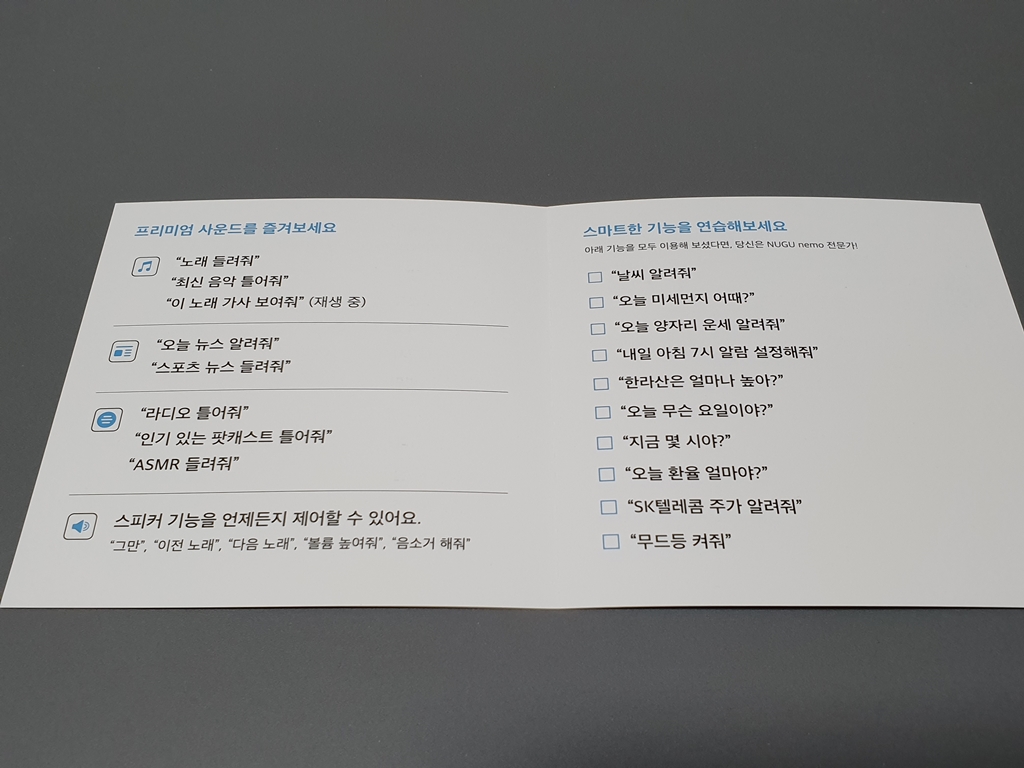 프리미엄 사운드를 즐겨보세요
“노래 들려줘”
“최신 음악 틀어줘”
“이 노래 가사 보여줘” (재생 중)
“오늘 뉴스 알려줘”
“스포츠 뉴스 들려줘”
“라디오 틀어줘”
“인기 있는 팟캐스트 틀어줘”
“ASMR 들려줘”
스피커 기능을 언제든지 제어할 수 있어요.
“그만”, “이전 노래”, “다음 노래”, “볼륨 높여줘”, “음소거 해줘”
스마트한 기능을 연습해보세요
아래 기능을 모두 이용해 보셨다면, 당신은 NUGU nemo 전문가!
“날씨 알려줘”
“오늘 미세먼지 어때?”
“오늘 양자리 운세 알려줘”
“내일 아침 7시 알람 설정해줘”
“한라산은 얼마나 높아?”
“오늘 무슨 요일이야?”
“지금 몇 시야?”
“오늘 환율 얼마야?”
“SK텔레콤 주가 알려줘”
“무드등 켜줘”